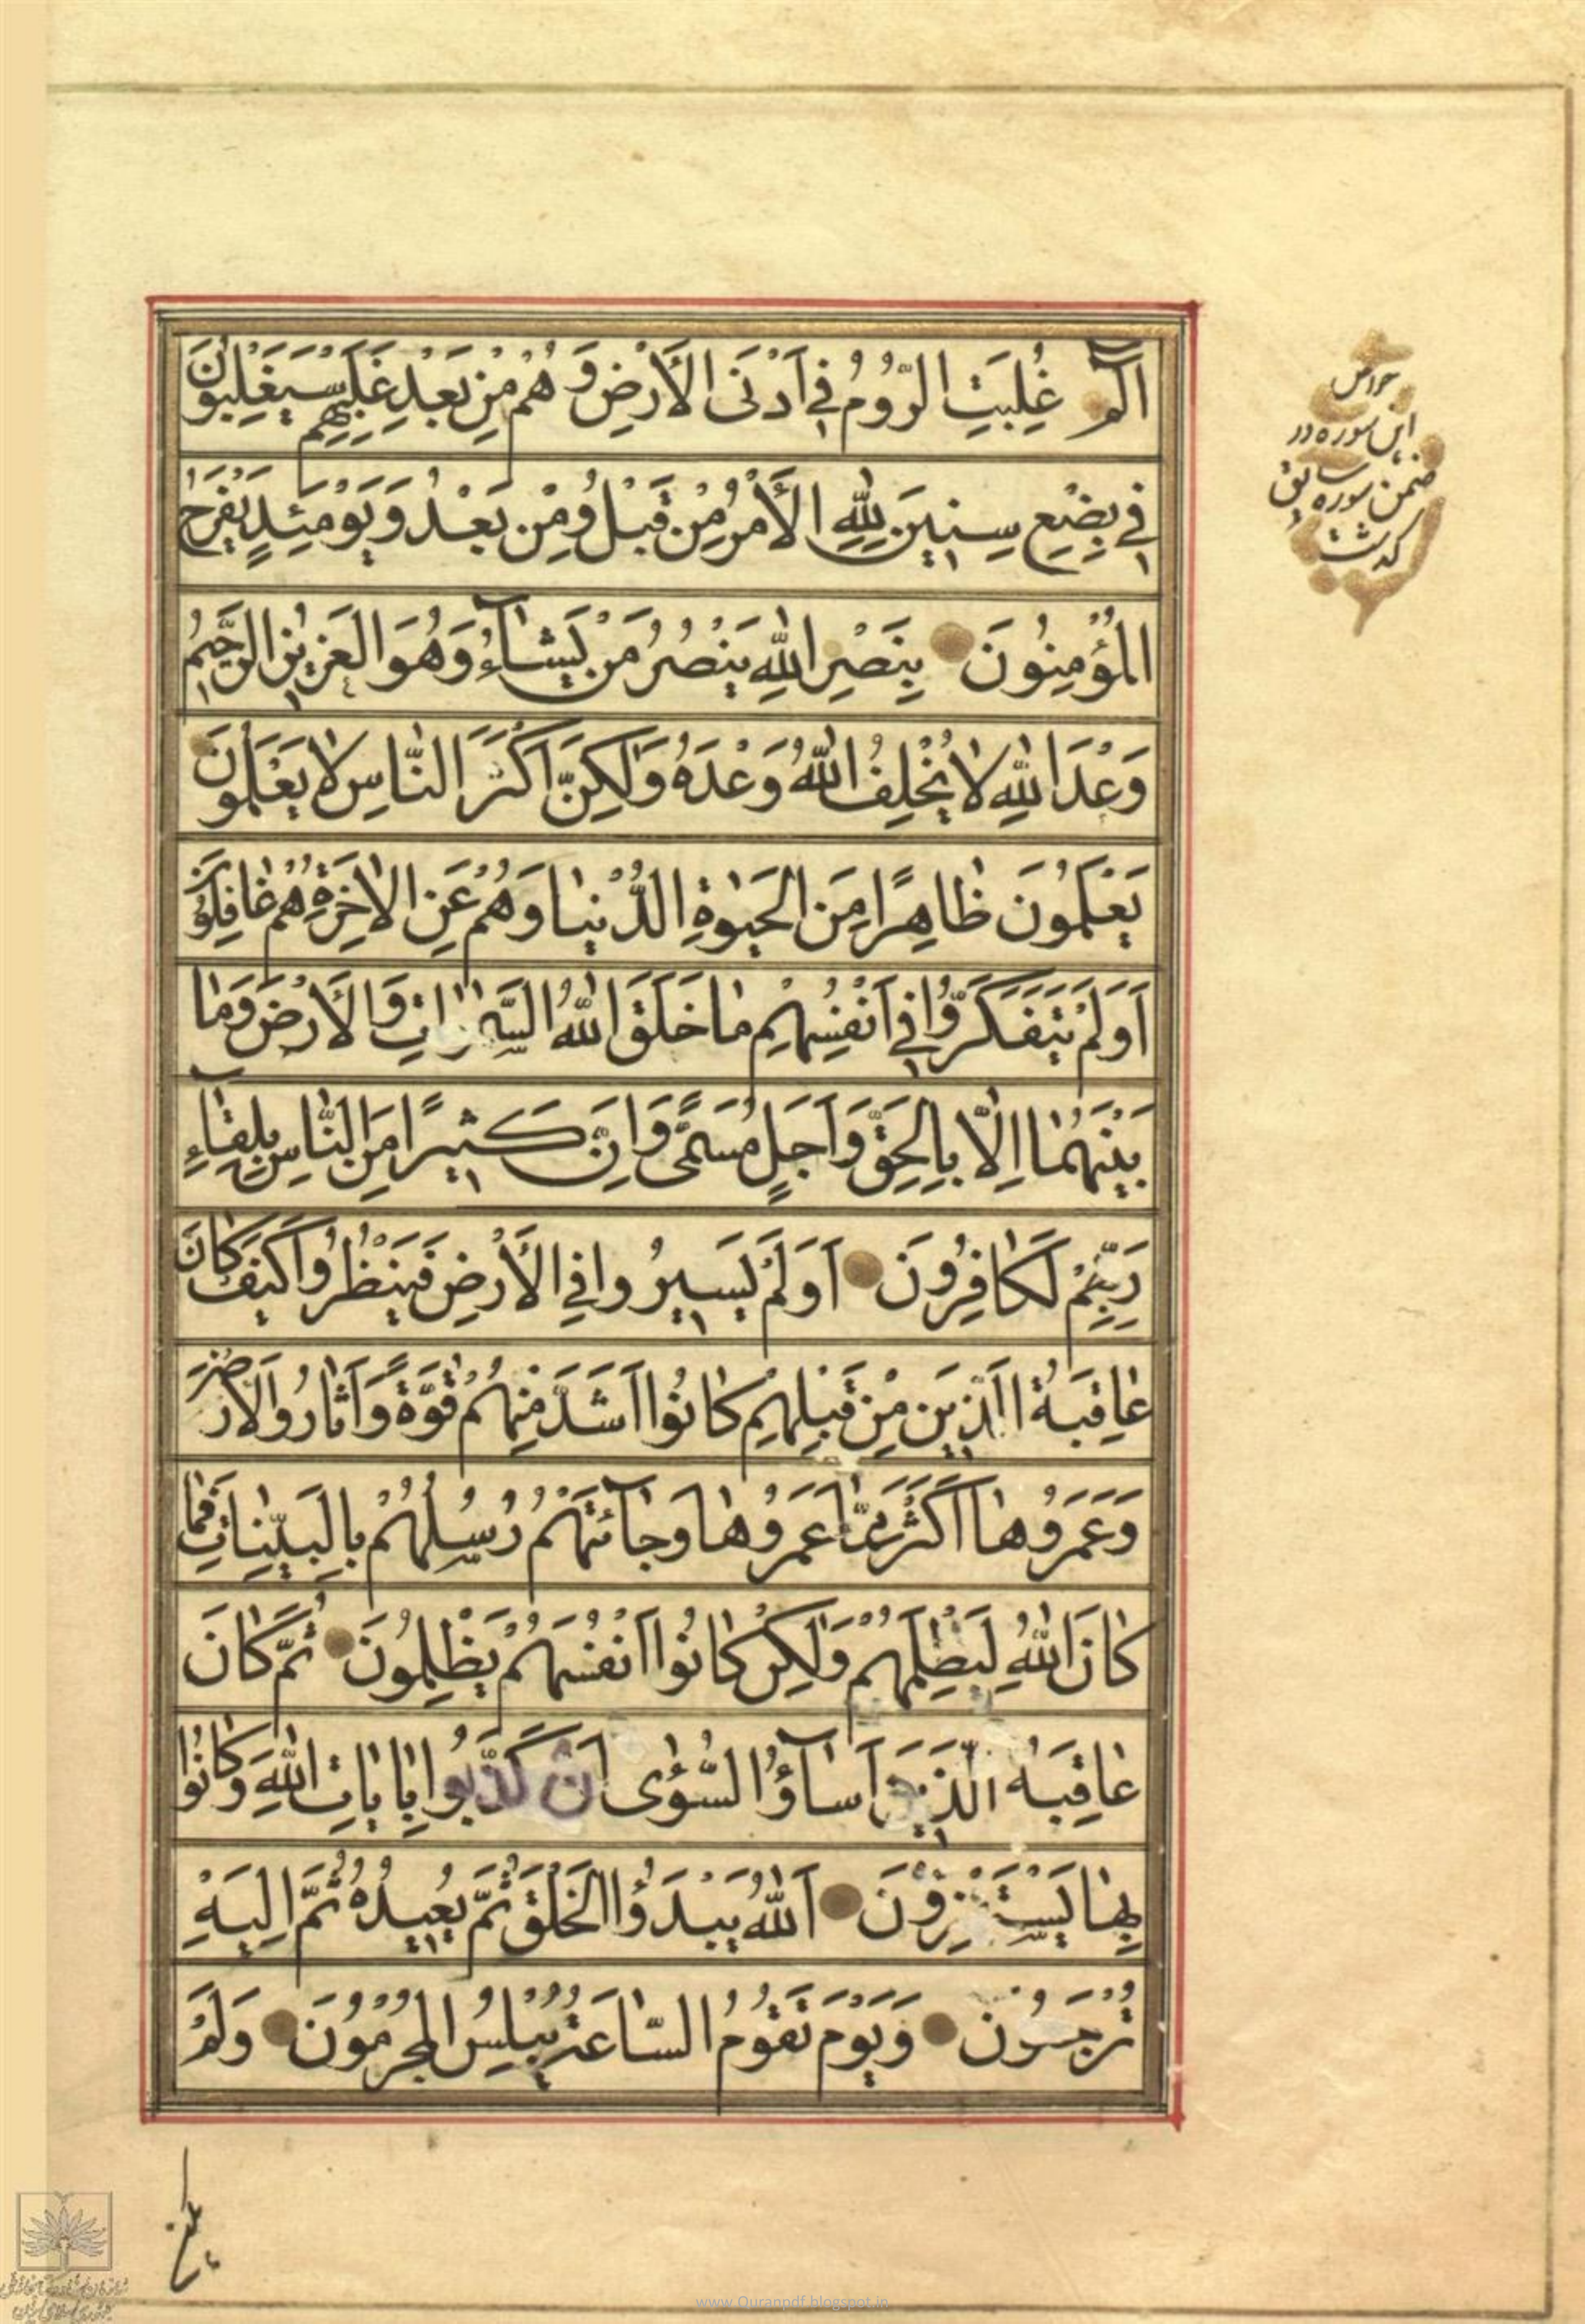 الٓمٓ غُلِبَتِ الرُّومُ فِي اَدْنَى الْأَرْضِ وَهُمْ مِنْ بَعْدِ غَلَبِهِمْ سَيَغْلِبُونَ
فِي بِضْعِ سِنِينَ لِلّٰهِ الْأَمْرُ مِنْ قَبْلُ وَمِنْ بَعْدُ وَيَوْمَئِذٍ يَفْرَحُ
الْمُؤْمِنُونَ بِنَصْرِ اللّٰهِ يَنْصُرُ مَنْ يَشَآءُ وَهُوَ الْعَزِيزُ الرَّحِيمُ
وَعْدَ اللّٰهِ لَا يُخْلِفُ اللّٰهُ وَعْدَهُ وَلٰكِنَّ اَكْثَرَ النَّاسِ لَا يَعْلَمُونَ
يَعْلَمُونَ ظَاهِرًا مِنَ الْحَيٰوةِ الدُّنْيَا وَهُمْ عَنِ الْاٰخِرَةِ هُمْ غَافِلُونَ
اَوَلَمْ يَتَفَكَّرُوا فِي اَنْفُسِهِمْ مَا خَلَقَ اللّٰهُ السَّمٰوَاتِ وَالْأَرْضَ وَمَا
بَيْنَهُمَا اِلَّا بِالْحَقِّ وَاَجَلٍ مُسَمًّى وَاِنَّ كَثِيرًا مِنَ النَّاسِ بِلِقَآءِ
رَبِّهِمْ لَكَافِرُونَ اَوَلَمْ يَسِيرُوا فِي الْأَرْضِ فَيَنْظُرُوا كَيْفَ كَانَ
عَاقِبَةُ الَّذِينَ مِنْ قَبْلِهِمْ كَانُوا اَشَدَّ مِنْهُمْ قُوَّةً وَاَثَارُوا الْأَرْضَ
وَعَمَرُوهَا اَكْثَرَ مِمَّا عَمَرُوهَا وَجَآئَتْهُمْ رُسُلُهُمْ بِالْبَيِّنَاتِ فَمَا
كَانَ اللّٰهُ لِيَظْلِمَهُمْ وَلٰكِنْ كَانُوا اَنْفُسَهُمْ يَظْلِمُونَ ثُمَّ كَانَ
عَاقِبَةَ الَّذِينَ اَسَآؤُا السُّؤٰى اَنْ كَذَّبُوا بِاٰيَاتِ اللّٰهِ وَكَانُوا
بِهَا يَسْتَهْزِؤُنَ اَللّٰهُ يَبْدَؤُا الْخَلْقَ ثُمَّ يُعِيدُهُ ثُمَّ اِلَيْهِ
تُرْجَعُونَ وَيَوْمَ تَقُومُ السَّاعَةُ يُبْلِسُ الْمُجْرِمُونَ وَلَمْ
خواص
این سوره در
ضمن سوره سابق
گذشت
www.Quranpdf.blogspot.in